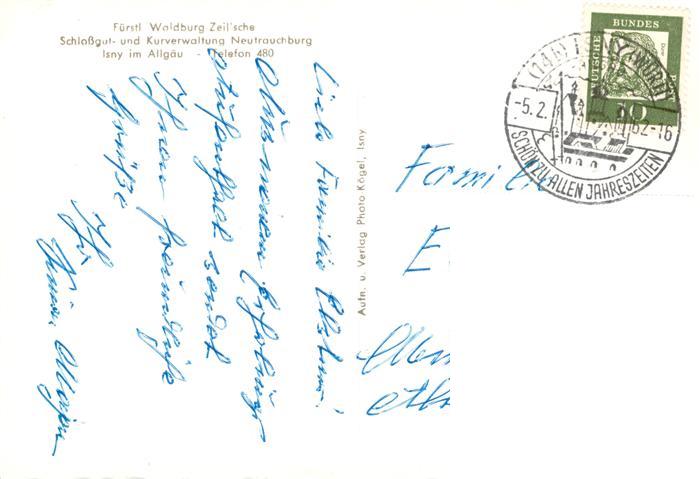 Fürstl Waldburg Zeil'sche
Schloßgut- und Kurverwaltung Neutrauchburg
Isny im Allgäu - Telefon 480
Liebe Familie
Aus meinem Erholungs
aufenthalt sendet
Ihnen freundliche
Grüße
Ihr
Aufn. u. Verlag Photo Kögel, Isny
Famili
E
DEUTSCHE BUNDES
10
(14b) ISNY (WÜRTT)
-5.2. 62-16
SCHÖN ZU ALLEN JAHRESZEITEN